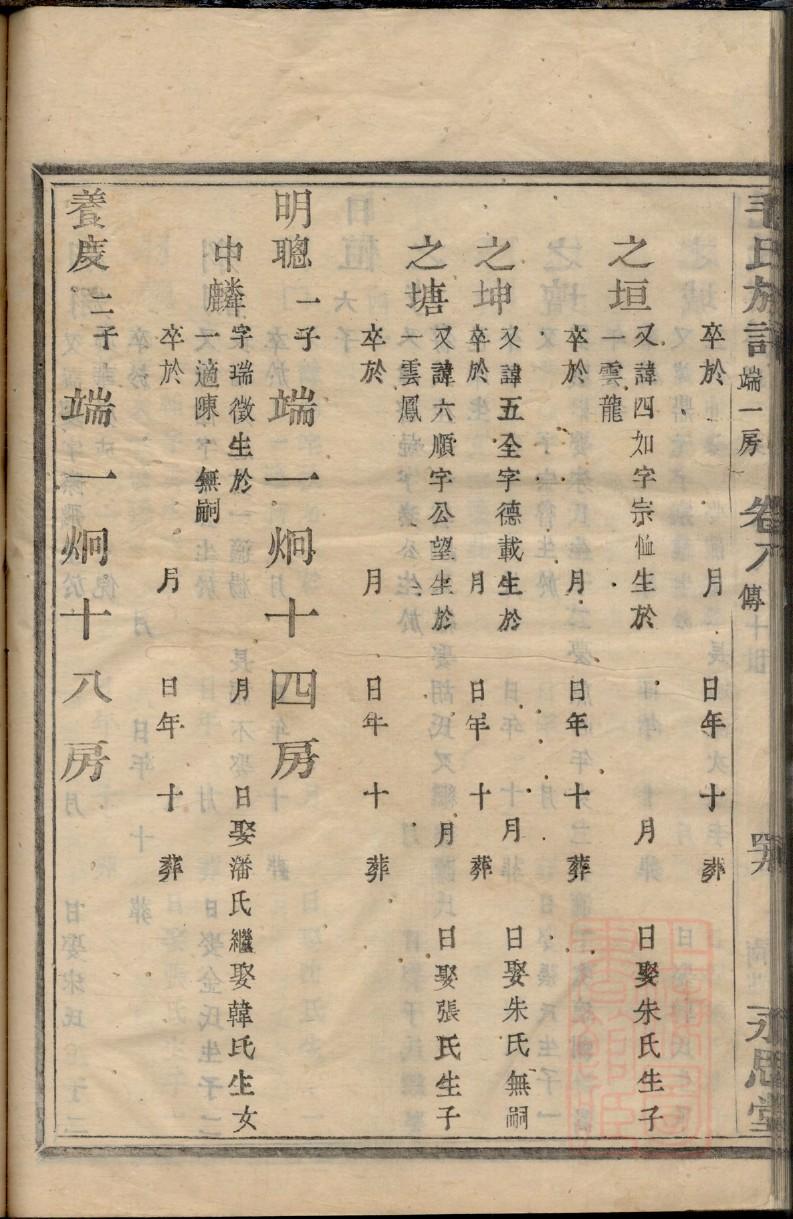 毛氏族譜 端一房 卷八 傳 永思堂
卒於 月 日年 十 葬
之垣 又諱四如字宗恤生於 月 日娶朱氏生子
一雲龍
卒於 月 日年 十 葬
之坤 又諱五全字德載生於 月 日娶朱氏無嗣
卒於 月 日年 十 葬
之塘 又諱六順字公望生於 月 日娶張氏生子
一雲鳳
卒於 月 日年 十 葬
明聰 一子 端一炯十四房
中麟 字瑞徵生於 月 日娶潘氏繼娶韓氏生女
一適陳 無嗣
卒於 月 日年 十 葬
養度 二子 端一炯十八房